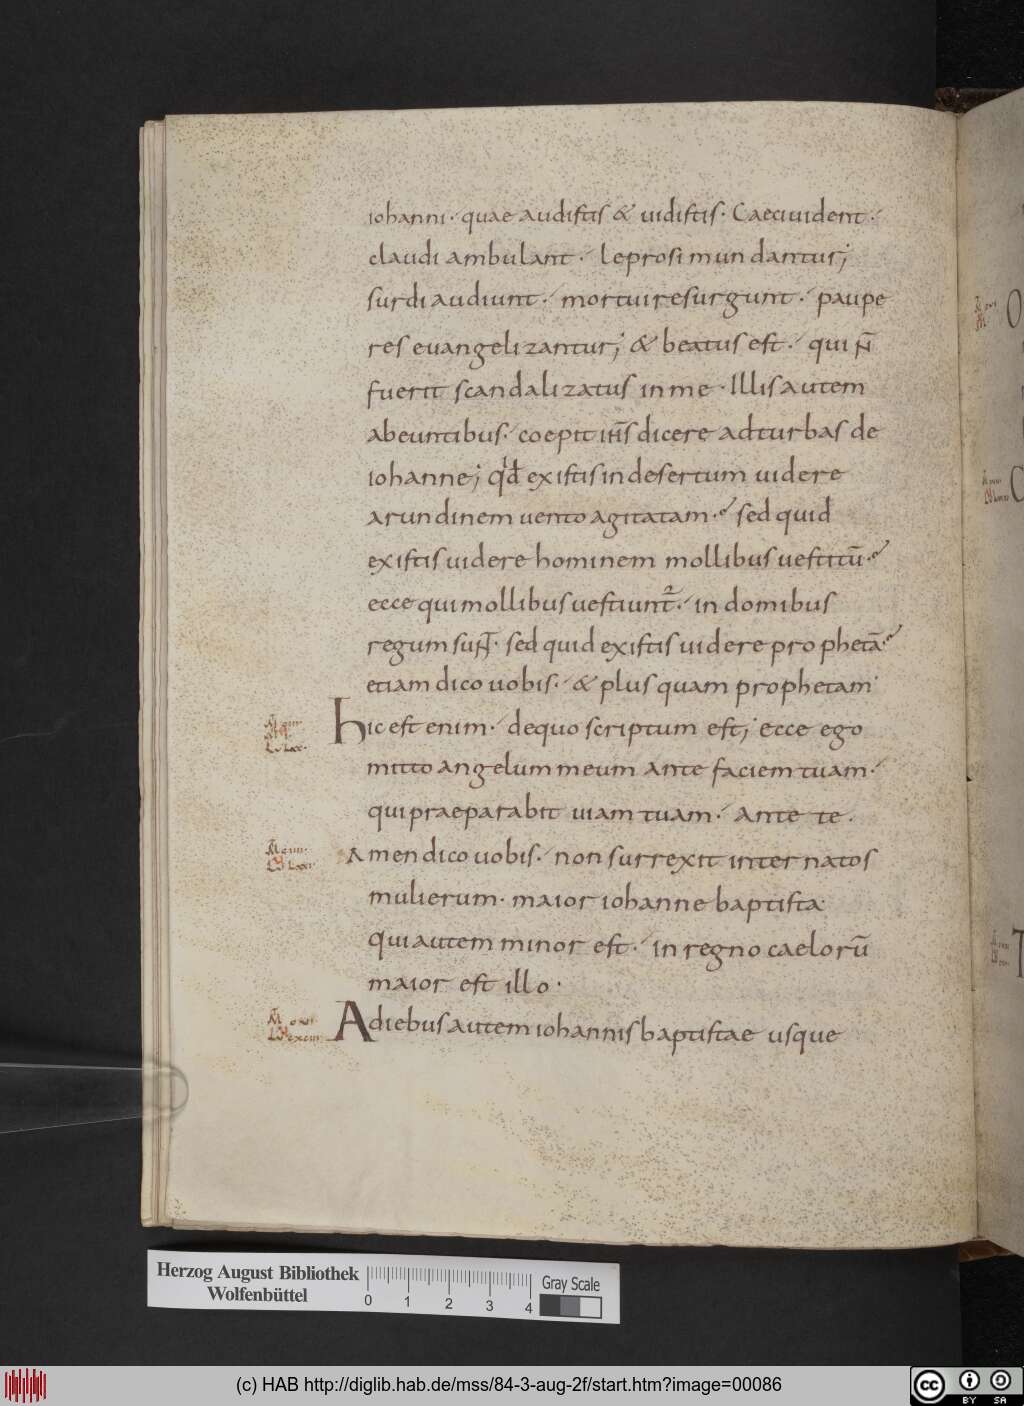 iohanni · quae audistis & vidistis · Caeci vident ·
claudi ambulant · leprosi mundantur;
surdi audiunt · mortui resurgunt · paupe
res evangelizantur; & beatus est · qui n̄
fuerit scandalizatus in me · Illis autem
abeuntibus · coepit ih̄s dicere ad turbas de
iohanne; qđ existis in desertum uidere
arundinem uento agitatam · sed quid
existis uidere hominem mollibus uestitū ·
ecce qui mollibus uestiunt̄ · in domibus
regum sun̄t · sed quid existis uidere prophetā ·
etiam dico uobis · & plus quam prophetam
hic est enim · de quo scriptum est; Ecce ego
mitto angelum meum ante faciem tuam ·
qui praeparabit uiam tuam · ante te ·
Amen dico uobis · non surrexit inter natos
mulierum · maior iohanne baptista
qui autem minor est · in regno caelorū
maior est illo ·
A diebus autem iohannis baptistae usque
Herzog August Bibliothek
Wolfenbüttel
0 1 2 3 4
Gray Scale
(c) HAB http://diglib.hab.de/mss/84-3-aug-2f/start.htm?image=00086
cc BY SA